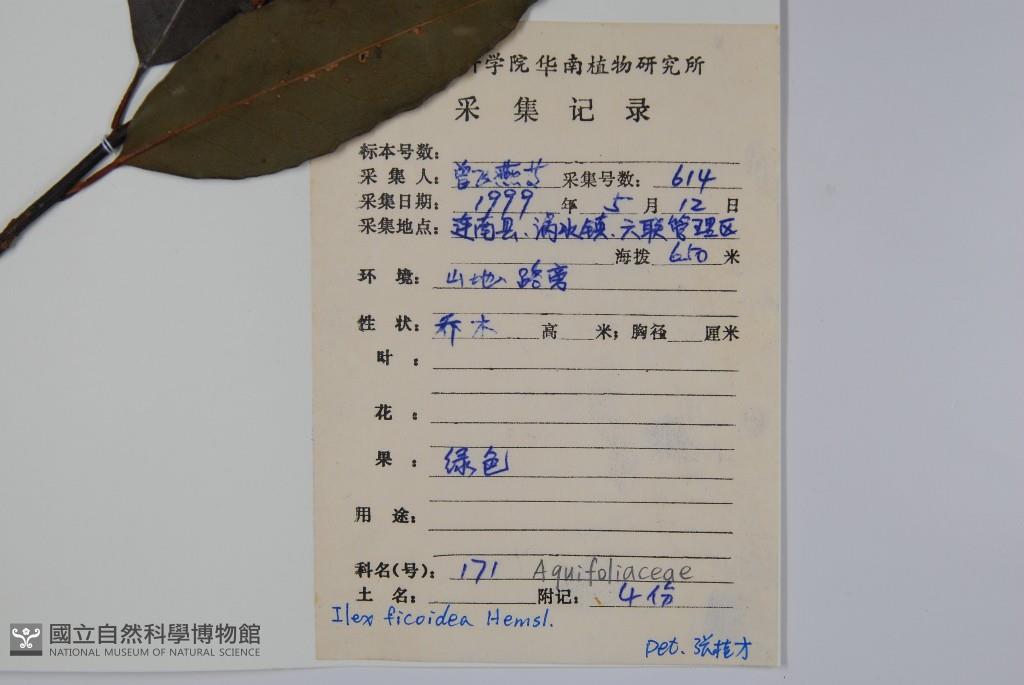 学院华南植物研究所
采集记录
标本号数:
采集人: 曾飞燕等 采集号数: 614
采集日期: 1999 年 5 月 12 日
采集地点: 连南县、涡水镇、六联管理区
海拨 650 米
环境: 山地、路旁
性状: 乔木 高 米; 胸径 厘米
叶:
花:
果: 绿色
用途:
科名(号): 171 Aquifoliaceae
土名: 附记: 4份
Ilex ficoidea Hemsl.
Det. 张桂才
國立自然科學博物館
NATIONAL MUSEUM OF NATURAL SCIENCE